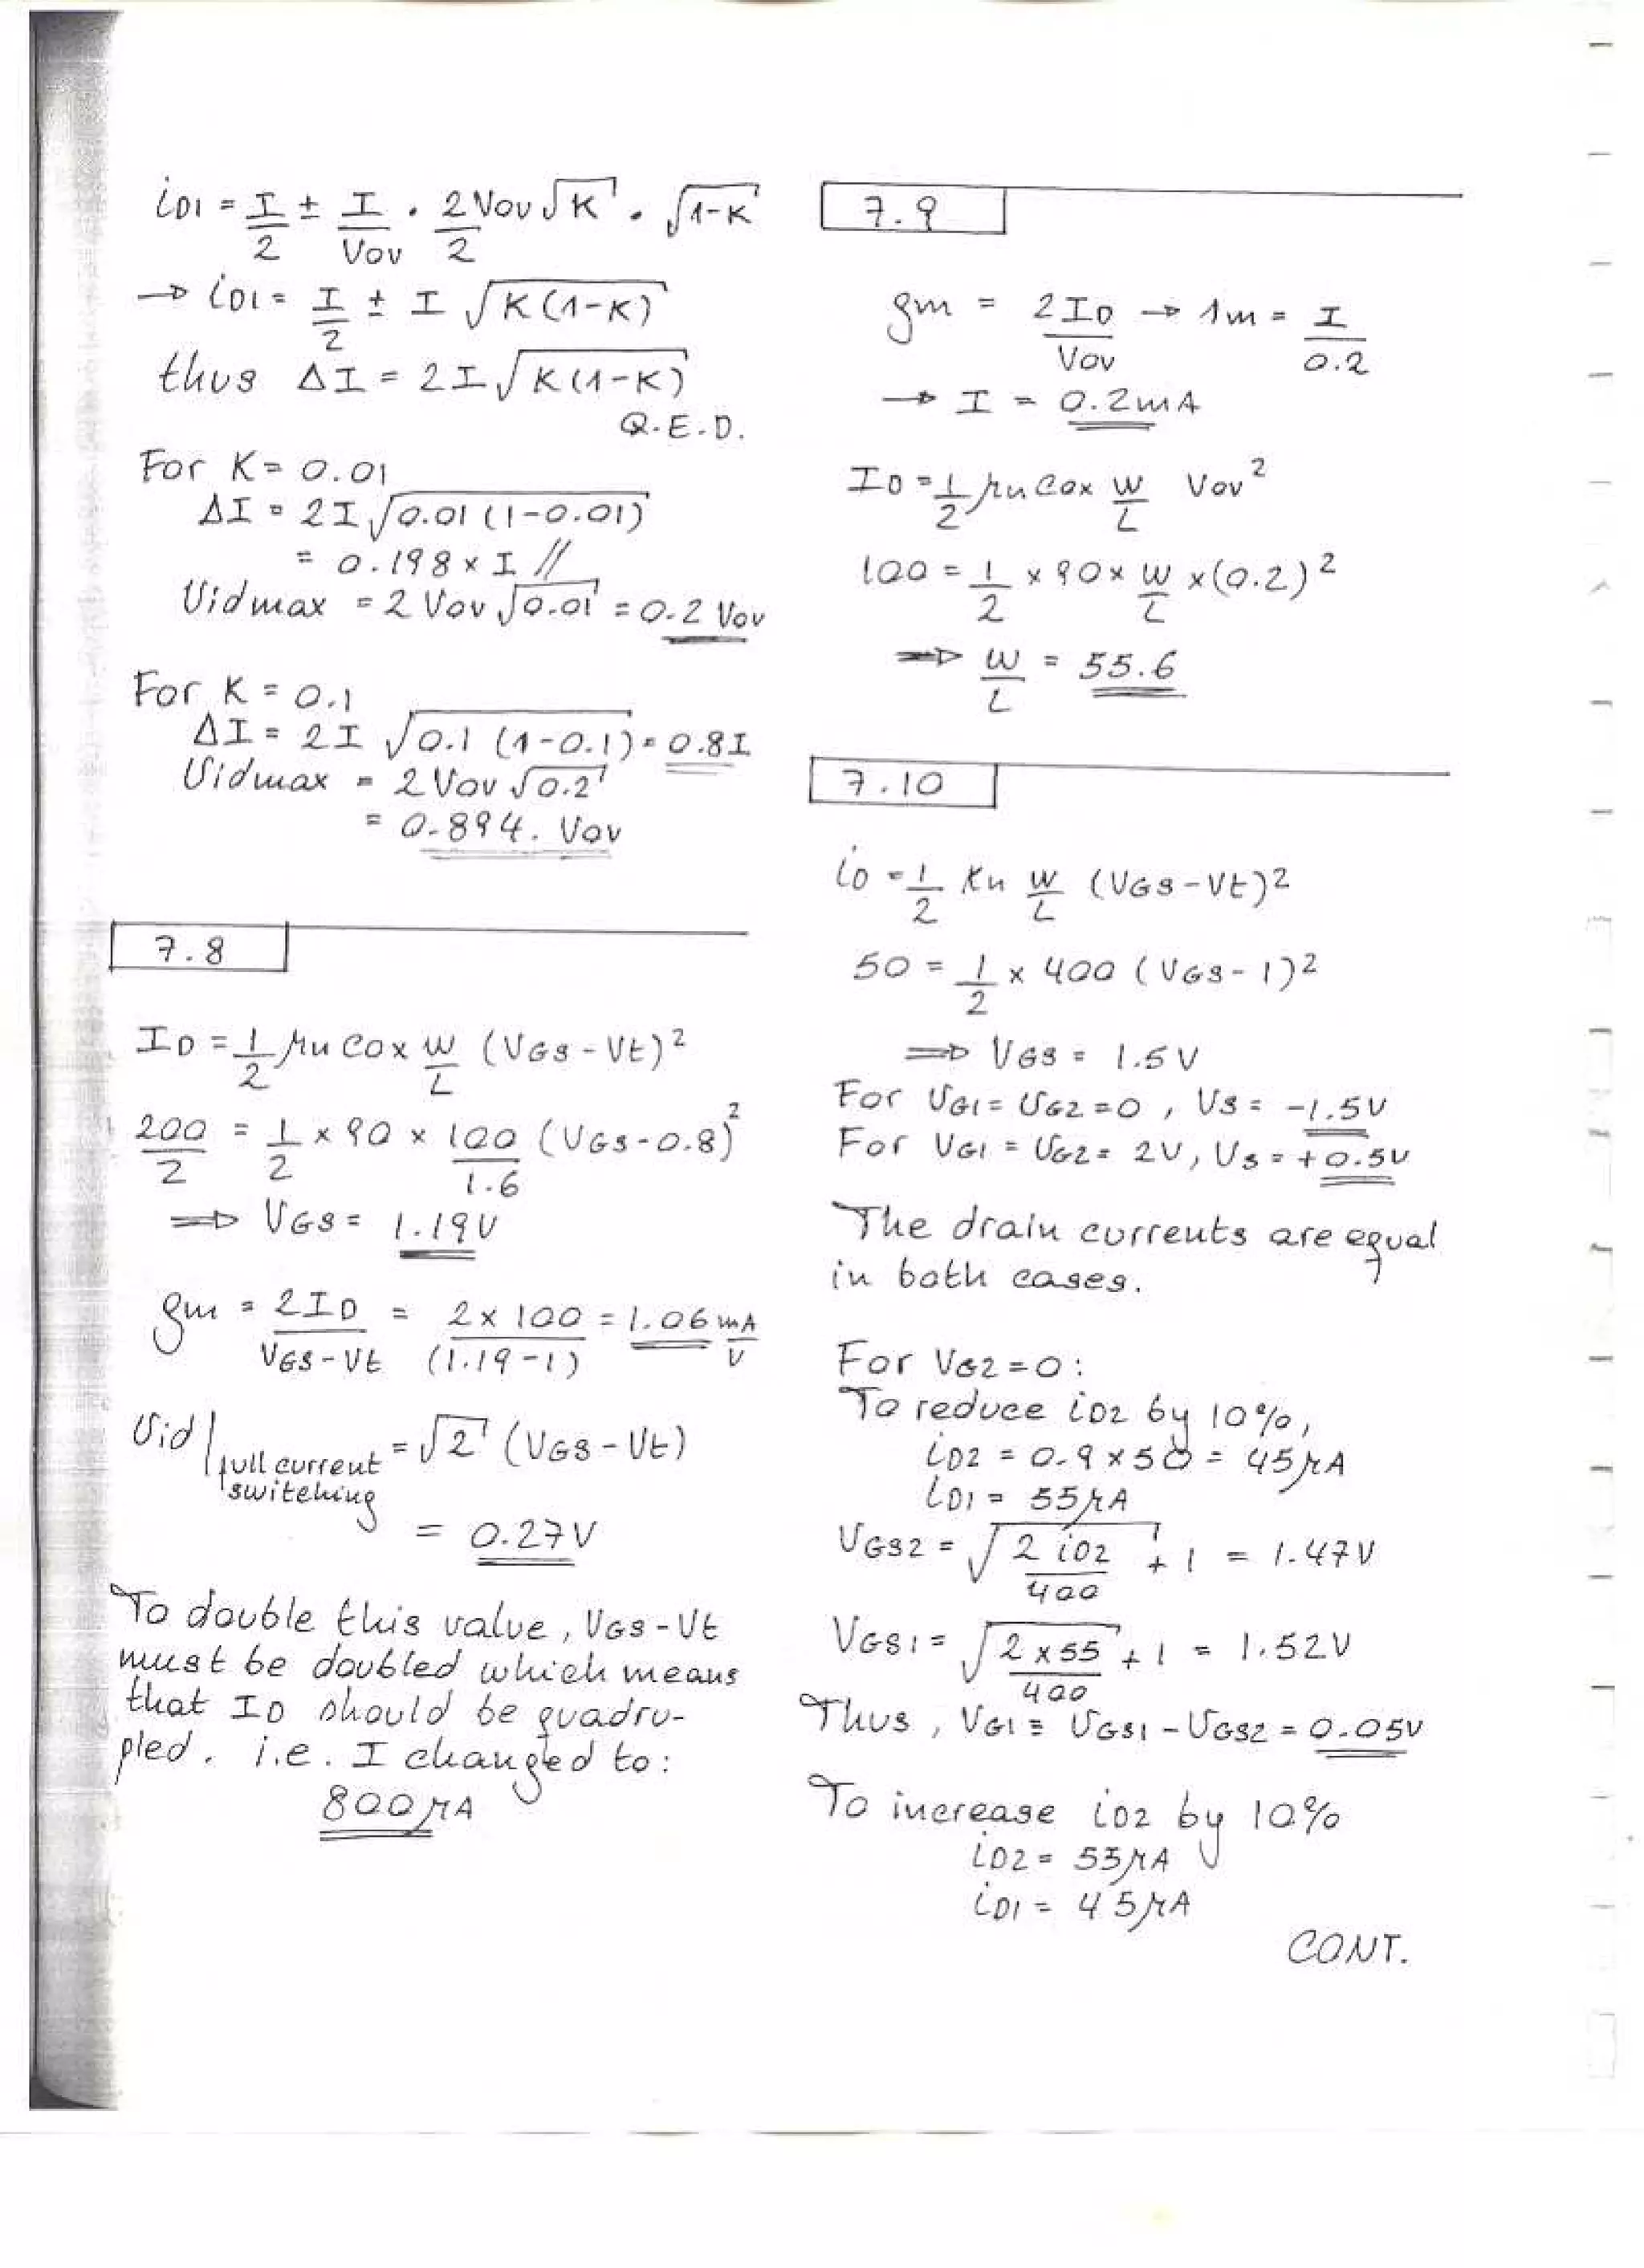 iD1 = I/2 ± I/Vov · 2Vov√K/2 · √1-K
→ iD1 = I/2 ± I √K(1-K)
thus ΔI = 2I√K(1-K)
Q.E.D.
For K = 0.01
ΔI = 2I√0.01(1-0.01)
= 0.198 × I //
Vidmax = 2Vov√0.01 = 0.2 Vov
For K = 0.1
ΔI = 2I √0.1 (1-0.1) = 0.8I
Vidmax = 2Vov√0.2
= 0.894. Vov
7.8
ID = 1/2 μn Cox W/L (VGS - Vt)²
200/2 = 1/2 × 90 × 100/1.6 (VGS - 0.8)²
⇒ VGS = 1.19V
gm = 2ID/VGS - Vt = 2 × 100/(1.19 - 1) = 1.06 mA/V
Vid | full current switching = √2 (VGS - Vt)
= 0.27V
To double this value, VGS - Vt
must be doubled which means
that ID should be quadru-
pled. i.e. I changed to:
800μA
7.9
gm = 2ID/Vov → 1m = I/0.2
→ I = 0.2mA
ID = 1/2 μn Cox W/L Vov²
100 = 1/2 × 90 × W/L × (0.2)²
⇒ W/L = 55.6
7.10
iD = 1/2 Kn W/L (VGS - Vt)²
50 = 1/2 × 400 (VGS - 1)²
⇒ VGS = 1.5V
For VG1 = VG2 = 0, VS = -1.5V
For VG1 = VG2 = 2V, VS = +0.5V
The drain currents are equal
in both cases.
For VG2 = 0:
To reduce iD2 by 10%,
iD2 = 0.9 × 50 = 45μA
iD1 = 55μA
VGS2 = √2 iD2/400 + 1 = 1.47V
VGS1 = √2 × 55/400 + 1 = 1.52V
Thus, VG1 = VGS1 - VGS2 = 0.05V
To increase iD2 by 10%
iD2 = 55μA
iD1 = 45μA
CONT.